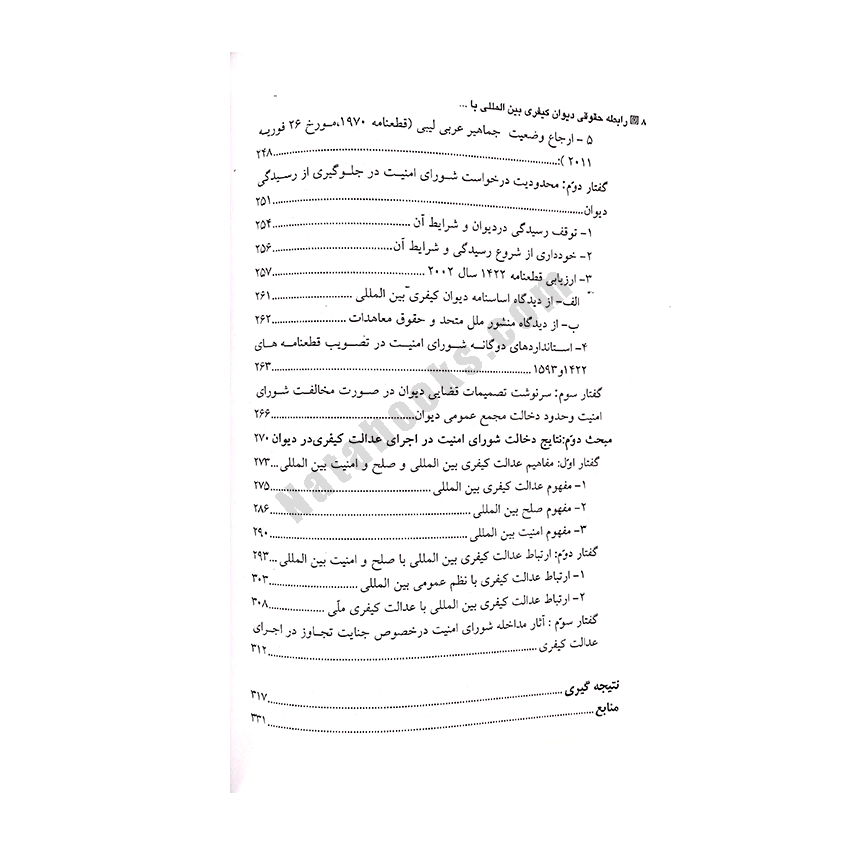 ۸ رابطه حقوقی دیوان کیفری بین المللی با ...
۵ - ارجاع وضعیت جماهیر عربی لیبی (قطعنامه ۱۹۷۰،مورخ ۲۶ فوریه
۲۰۱۱ ):............................................................ ۲۴۸
گفتار دوّم: محدودیت درخواست شورای امنیت در جلوگیری از رسیدگی
دیوان............................................................ ۲۵۱
۱- توقف رسیدگی دردیوان و شرایط آن ........................................ ۲۵۴
۲- خودداری از شروع رسیدگی و شرایط آن.................................. ۲۵۶
۳- ارزیابی قطعنامه ۱۴۲۲ سال ۲۰۰۲ ........................................ ۲۵۷
الف- از دیدگاه اساسنامه دیوان کیفری بین المللی ........................ ۲۶۱
ب- از دیدگاه منشور ملل متحد و حقوق معاهدات ...................... ۲۶۲
۴- استانداردهای دوگانه شورای امنیت در تصویب قطعنامه های
۱۴۲۲و۱۵۹۳ ............................................................ ۲۶۳
گفتار سوم: سرنوشت تصمیمات قضایی دیوان در صورت مخالفت شورای
امنیت وحدود دخالت مجمع عمومی دیوان.................................. ۲۶۶
مبحث دوّم:نتایج دخالت شورای امنیت در اجرای عدالت کیفری‌در دیوان ۲۷۰
گفتار اوّل: مفاهیم عدالت کیفری بین المللی و صلح و امنیت بین المللی... ۲۷۳
۱- مفهوم عدالت کیفری بین المللی ........................................ ۲۷۵
۲- مفهوم صلح بین المللی .................................................. ۲۸۶
۳- مفهوم امنیت بین المللی .................................................. ۲۹۰
گفتار دوّم: ارتباط عدالت کیفری بین المللی با صلح و امنیت بین المللی... ۲۹۳
۱- ارتباط عدالت کیفری با نظم عمومی بین المللی ........................ ۳۰۳
۲- ارتباط عدالت کیفری بین المللی با عدالت کیفری ملّی .............. ۳۰۸
گفتار سوّم : آثار مداخله شورای امنیت درخصوص جنایت تجاوز در اجرای
عدالت کیفری ............................................................ ۳۱۲
نتیجه گیری ............................................................ ۳۱۷
منابع............................................................ ۳۳۱
Natabooks.com